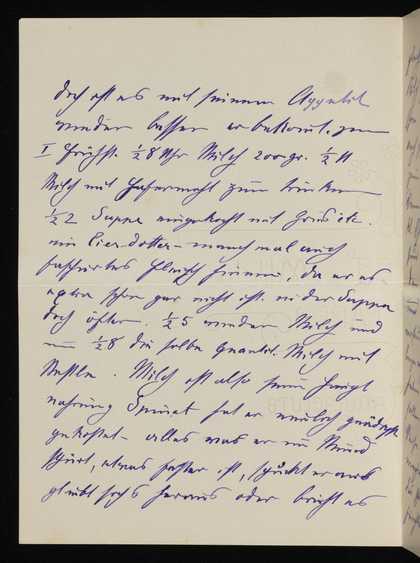 doch ist es mit seinem Appetit
wieder besser er bekommt zum
I Frühst. ½ 8 Uhr Milch 200 gr. ½ 11
Milch mit Hafermehl zum trinken
½ 2 Suppe eingekocht mit Gries etc.
ein Eierdotter – manchmal auch
faschirtes Fleisch hinein, da er es
extra schon gar nicht ißt. in der Suppe
doch öfter. ½ 5 wieder Milch und
um ½ 8 die selbe Quantit. Milch mit
Nestle. Milch ist also seine Haupt
nahrung Spinat hat er neulich
gekostet – alles was er im Mund
spürt, etwas fester ist, spuckt er aus
heraus oder bricht es